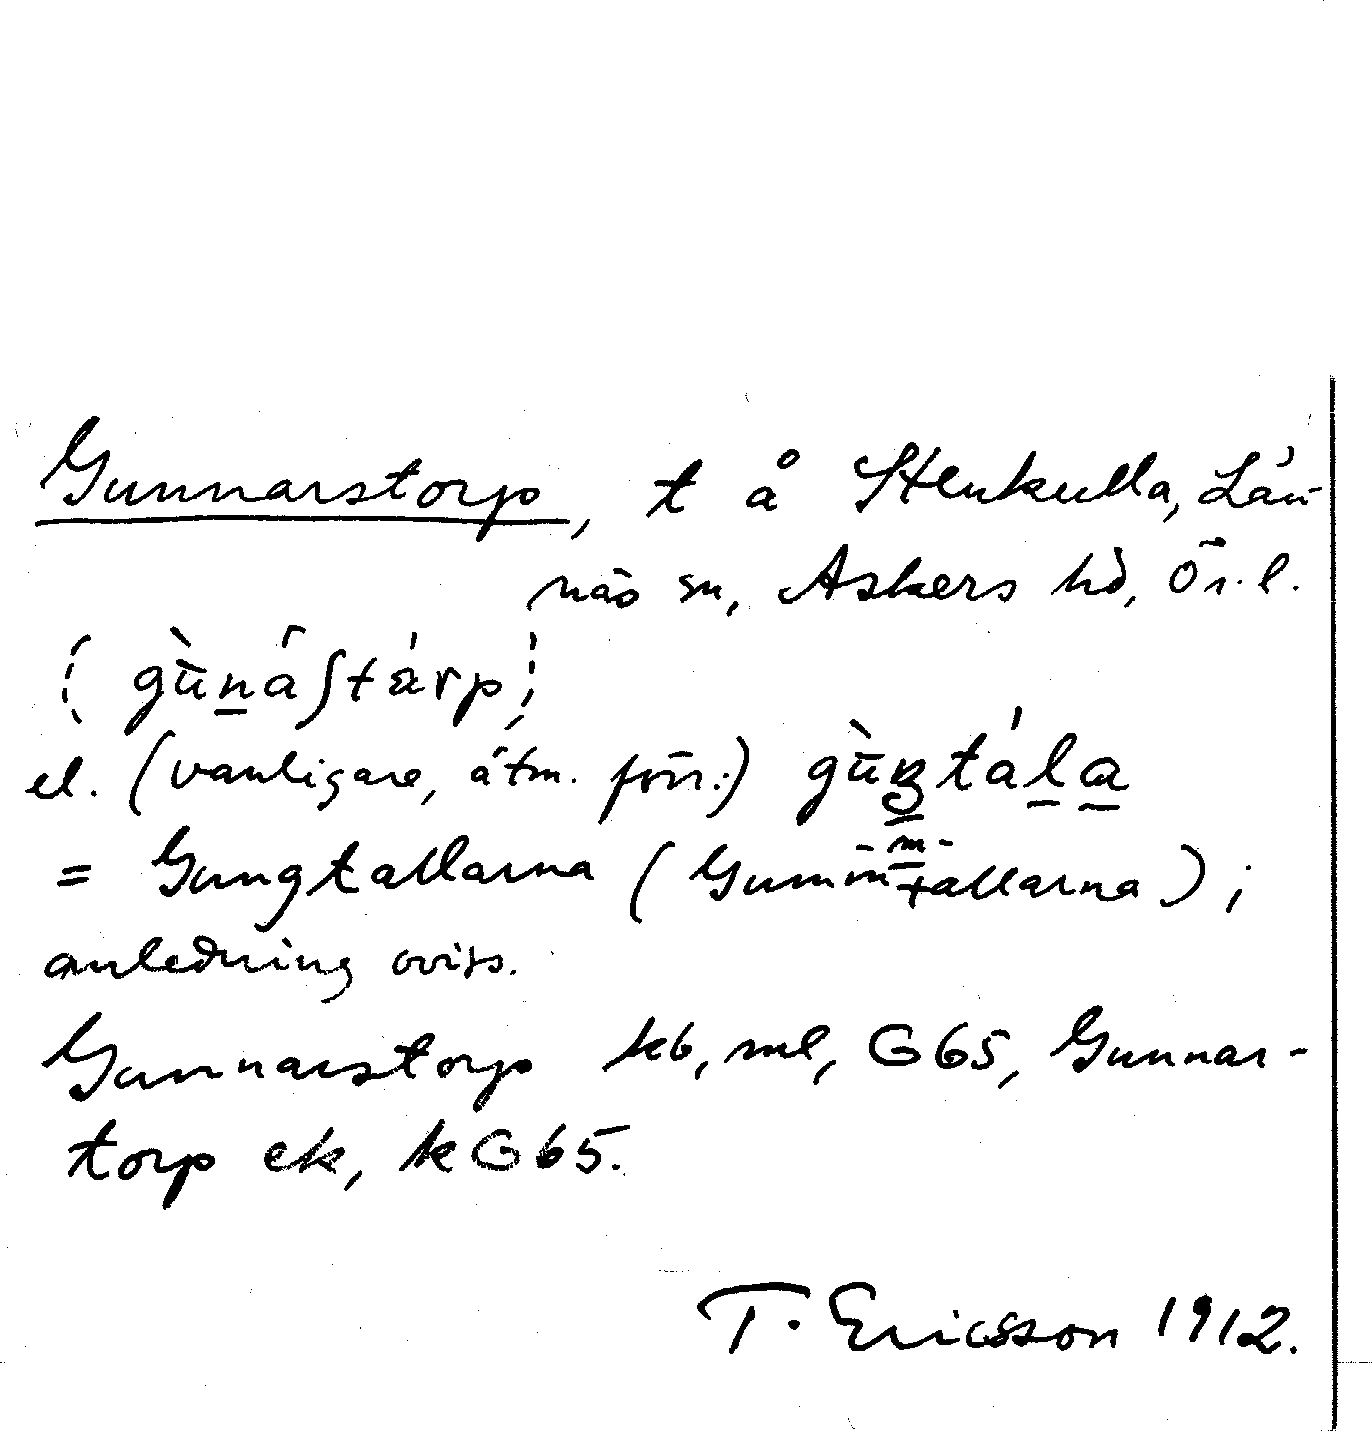 Gunnarstorp, t å Stenkulla, Län-
näs sn, Askers hd, Ör. l.
el. (vanligare, åtm. förr:)
= Gungtallarna (Gummtallarna);
anledning oviss.
Gunnarstorp kb, ml, G65, Gunnar-
torp ek, kG65.
T. Ericsson 1912.